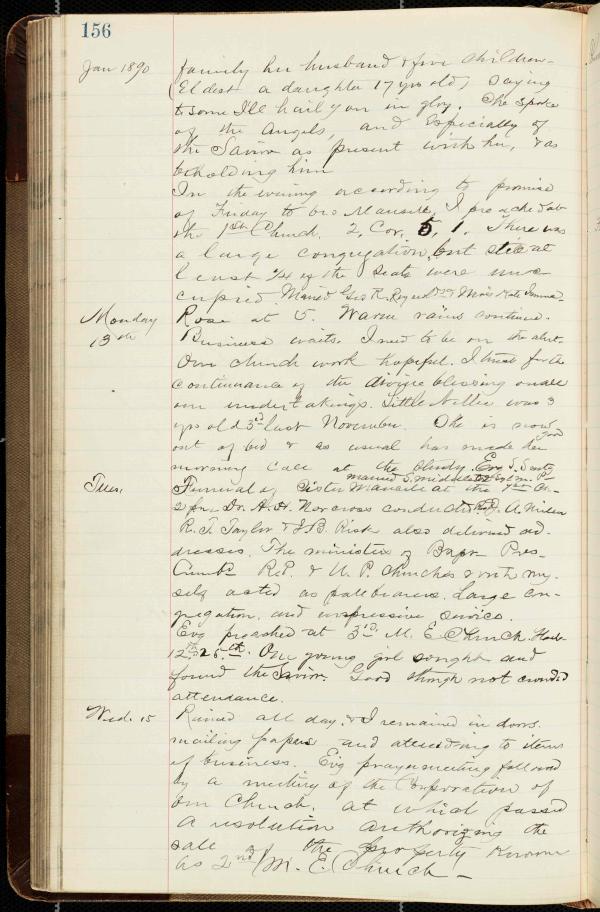 156
Jan 1890 family her husband & five children-
(Eldest a daughter 17 yrs old) saying
to some I'll hail you in glory. She spoke
of the Angels, and especially of
the Savior as present with her, & as
beholding him
In the evening according to promise
of Friday to bro Mansile, I preached at
the 1st Church. 2, Cor, 5, 1. There was
a large congregation, but still at
least 1/4 of the seats were unoc-
cupied. Married Geo R. & Miss Kate
Monday 13th Rose at 5. Warm rains continue.
Business waits. I need to be on the alert.
Our church work hopeful. I trust for the
continuance of the divine blessing on all
our undertakings. Little Nellie was 3
yrs old 3d last November. She is now
out of bed & as usual has made her good
morning call at the study. Evg
married S.
Tues. Funeral of Sister Mansile at the
2 P.M. Dr. A. H. Norcross conducted J. A. Miller
R. T. Taylor & J.B. Risk also delivered ad-
dresses. The ministers of Bapt Pres-
Cumb. R.P. & U. P. Churches & with my-
self acted as pall bearers. Large con-
gregation, and impressive service.
Evg preached at 3d. M. E Church.
12th 25 ct. One young girl sought and
found the Savior. Good though not crowded
attendance.
Wed. 15 Rained all day. & I remained in doors.
mailing papers and attending to items
of business. Evg prayermeeting followed
by a meeting of the Corporation of
our Church, at which passed
a resolution authorizing the
sale the property known
as 2nd M. E. Church -